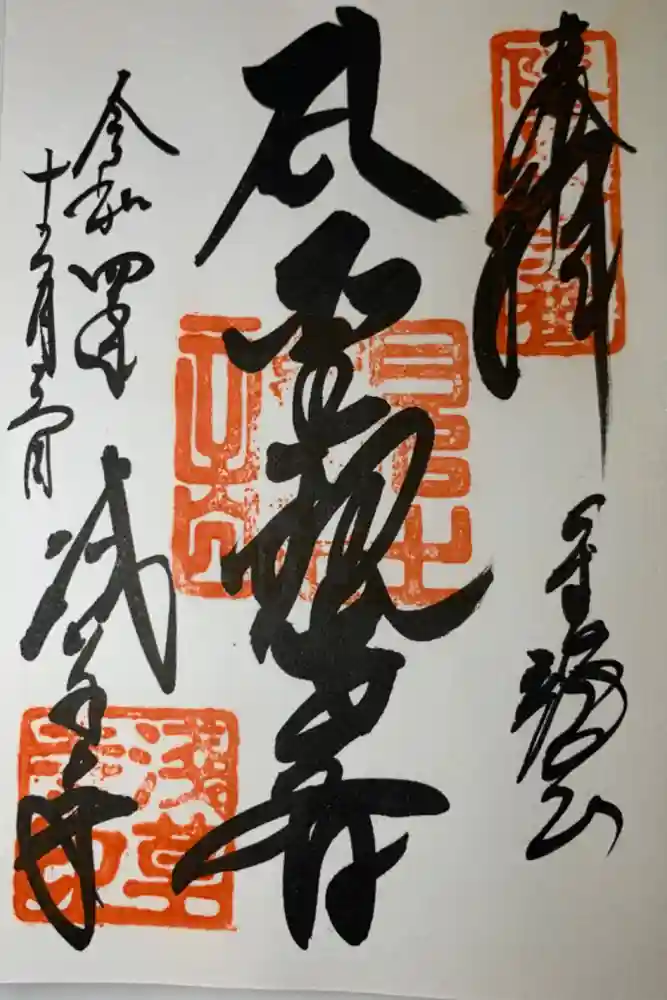 奉拝
金龍山
聖観世音
令和四年
十二月三日
浅草寺
浅草
寺印